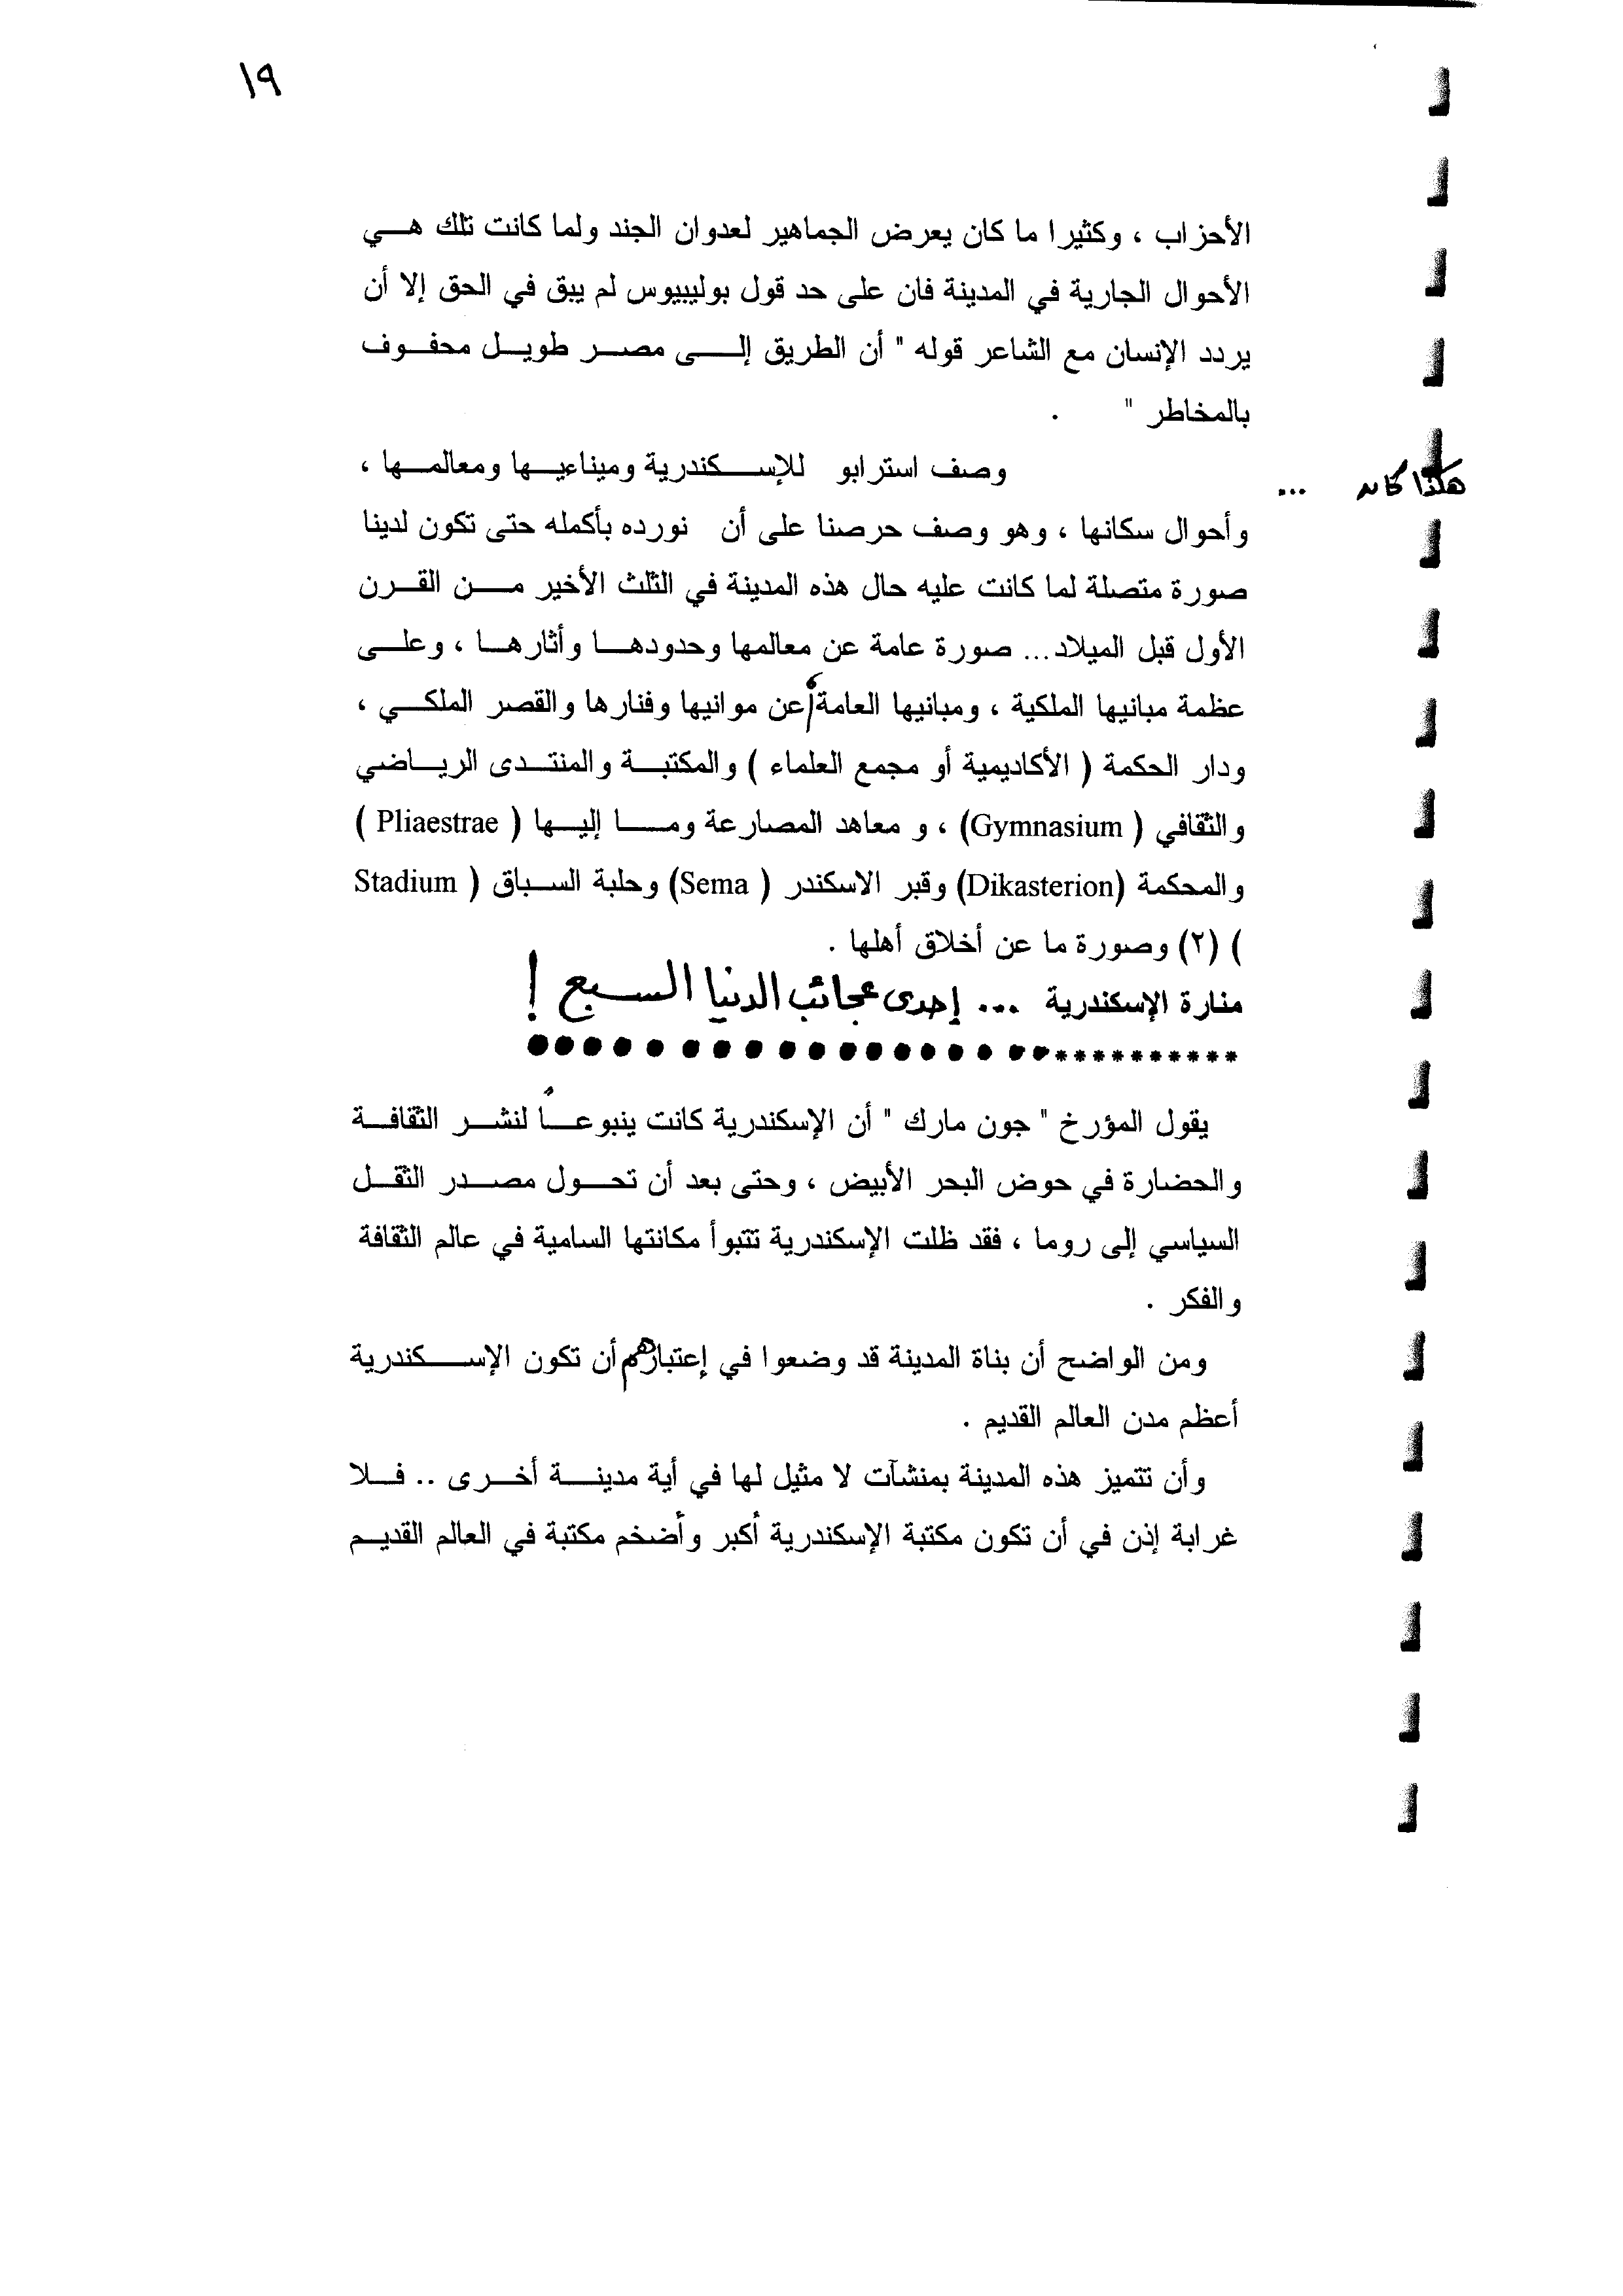 ١٩
الأحزاب ، وكثيرا ما كان يعرض الجماهير لعدوان الجند ولما كانت تلك هي
الأحوال الجارية في المدينة فان على حد قول بوليبيوس لم يبق في الحق إلا أن
يردد الإنسان مع الشاعر قوله " أن الطريق إلى مصر طويل محفوف
بالمخاطر " .
هكذا كان ... وصف استرابو للإسكندرية وميناءيها ومعالمها ،
وأحوال سكانها ، وهو وصف حرصنا على أن نورده بأكمله حتى تكون لدينا
صورة متصلة لما كانت عليه حال هذه المدينة في الثلث الأخير من القرن
الأول قبل الميلاد... صورة عامة عن معالمها وحدودها وأثارها ، وعلى
عظمة مبانيها الملكية ، ومبانيها العامة، عن موانيها وفنارها والقصر الملكي ،
ودار الحكمة ( الأكاديمية أو مجمع العلماء ) والمكتبة والمنتدى الرياضي
والثقافي ( Gymnasium) ، و معاهد المصارعة وما إليها ( Pliaestrae )
والمحكمة (Dikasterion) وقبر الاسكندر ( Sema) وحلبة السباق ( Stadium
) (٢) وصورة ما عن أخلاق أهلها .
منارة الإسكندرية ... إحدى عجائب الدنيا السبع !
يقول المؤرخ " جون مارك " أن الإسكندرية كانت ينبوعاً لنشر الثقافة
والحضارة في حوض البحر الأبيض ، وحتى بعد أن تحول مصدر الثقل
السياسي إلى روما ، فقد ظلت الإسكندرية تتبوأ مكانتها السامية في عالم الثقافة
والفكر .
ومن الواضح أن بناة المدينة قد وضعوا في إعتبارهم أن تكون الإسكندرية
أعظم مدن العالم القديم .
وأن تتميز هذه المدينة بمنشآت لا مثيل لها في أية مدينة أخرى .. فلا
غرابة إذن في أن تكون مكتبة الإسكندرية أكبر وأضخم مكتبة في العالم القديم